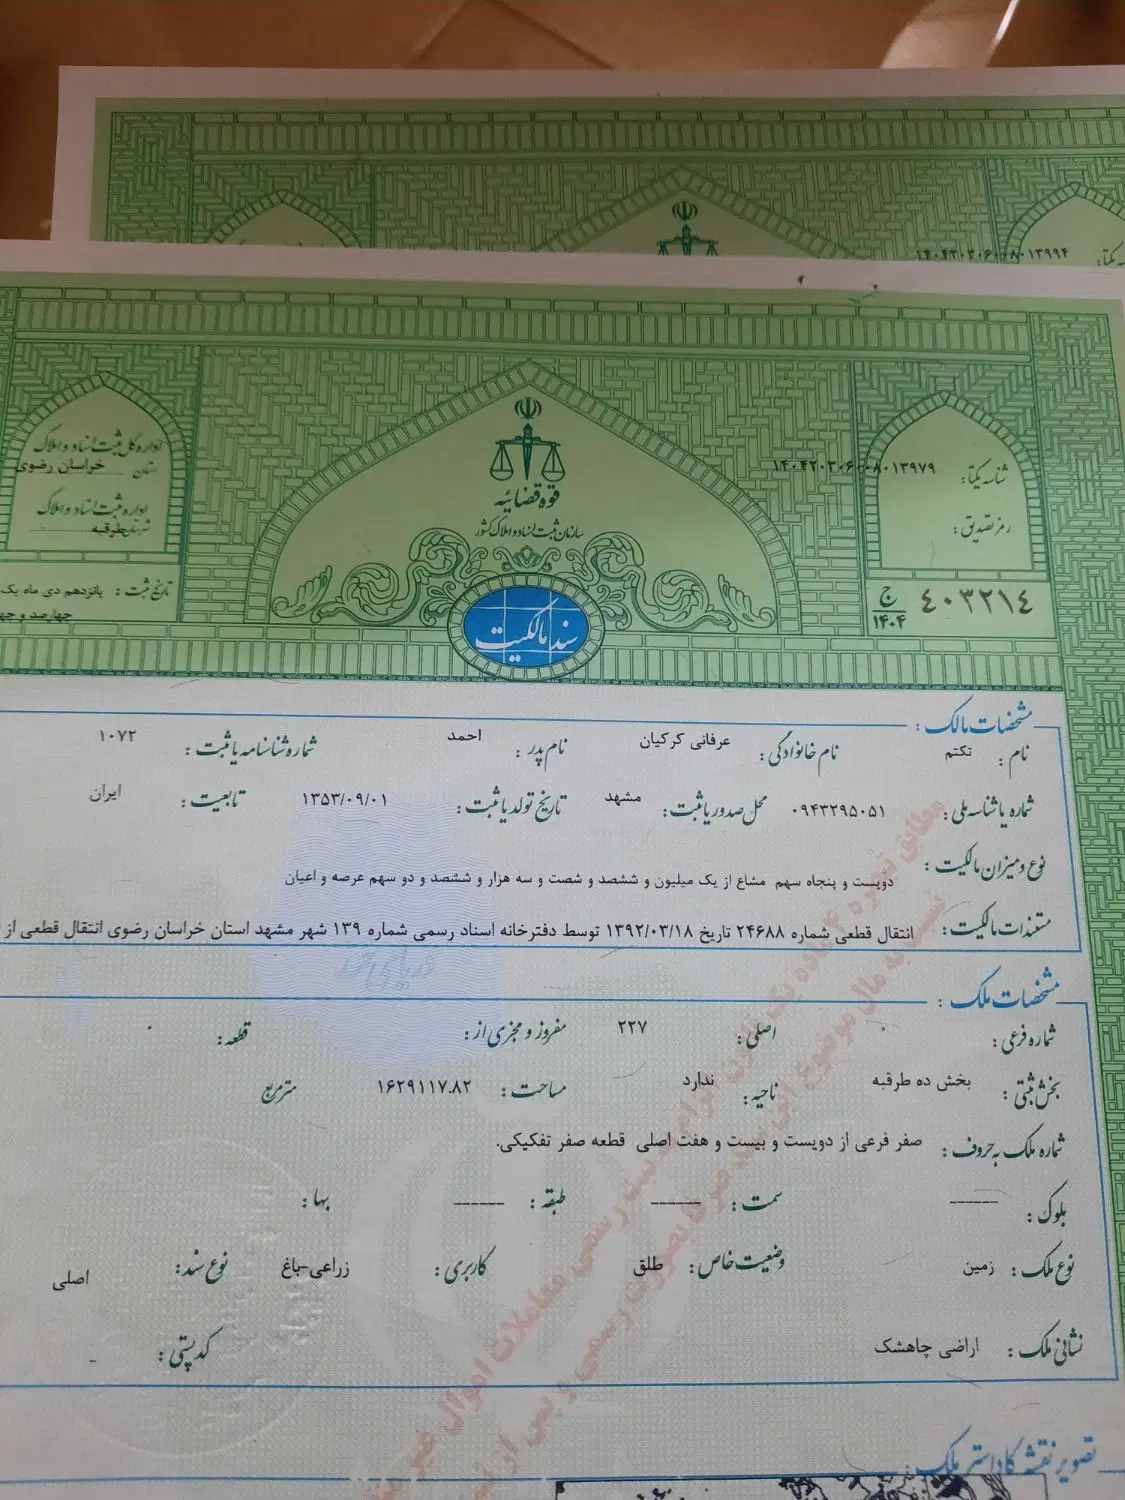 ۱۴۰۴۲۰۳۰۶۰۰۸۰۱۳۹۹۴
اداره کل ثبت اسناد و املاک
استان خراسان رضوی
اداره ثبت اسناد و املاک
شهرستان طرقبه
تاریخ ثبت : پانزدهم دی ماه یک
چهارصد و
قوه قضائیه
سازمان ثبت اسناد و املاک کشور
سند مالکیت
شناسه یکتا: ۱۴۰۴۲۰۳۰۶۰۰۸۰۱۳۹۷۹
رمز تصدیق :
۴۰۳۲۱۴ ج ۱۴۰۴
مشخصات مالک :
نام : تکتم نام خانوادگی : عرفانی کرکیان نام پدر : احمد شماره شناسنامه یا ثبت : ۱۰۷۲
شماره یا شناسه ملی : ۰۹۴۳۲۹۵۰۵۱ محل صدور یا ثبت : مشهد تاریخ تولد یا ثبت : ۱۳۵۳/۰۹/۰۱ تابعیت : ایران
نوع و میزان مالکیت : دویست و پنجاه سهم مشاع از یک میلیون و ششصد و شصت و سه هزار و ششصد و دو سهم عرصه و اعیان
مستندات مالکیت : انتقال قطعی شماره ۲۴۶۸۸ تاریخ ۱۳۹۲/۰۳/۱۸ توسط دفترخانه اسناد رسمی شماره ۱۳۹ شهر مشهد استان خراسان رضوی انتقال قطعی از
مشخصات ملک :
شماره فرعی : ۰ اصلی : ۲۲۷ مفروز و مجزی از : قطعه : ۰
بخش ثبتی : بخش ده طرقبه ناحیه : ندارد مساحت : ۱۶۲۹۱۱۷.۸۲ مترمربع
شماره ملک به حروف : صفر فرعی از دویست و بیست و هفت اصلی قطعه صفر تفکیکی.
بلوک : ------ سمت : ------ طبقه : ------ بها :
نوع ملک : زمین وضعیت خاص : طلق کاربری : زراعی-باغ نوع سند : اصلی
نشانی ملک : اراضی چاهشک کد پستی : -
تصویر نقشه کاداستر ملک